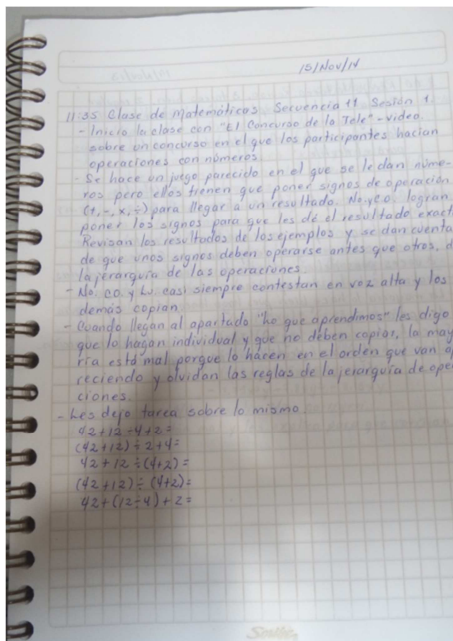 15/Nov/14
11:35 Clase de matemáticas Secuencia 11 Sesión 1
- Inicio la clase con "El Concurso de la Tele" - video
sobre un concurso en el que los participantes hacían
operaciones con números.
- Se hace un juego parecido en el que se le dan núme-
ros pero ellos tienen que poner signos de operación
(+, -, x, ÷) para llegar a un resultado. No. y co. logran
poner los signos para que les dé el resultado exact
Revisan los resultados de los ejemplos y se dan cuenta
de que unos signos deben operarse antes que otros, d
la jerarquía de las operaciones.
- No. co. y Lu. casi siempre contestan en voz alta y los
demás copian.
- Cuando llegan al apartado "Lo que aprendimos" les digo
que lo hagan individual y que no deben copiar, la may
ría está mal porque lo hacen en el orden que van ap
reciendo y olvidan las reglas de la jerarquía de oper
ciones.
- Les dejo tarea sobre lo mismo.
42+12÷4+2=
(42+12)÷2+4=
42+12÷(4+2)=
(42+12)÷(4+2)=
42+(12÷4)+2=
Scribe